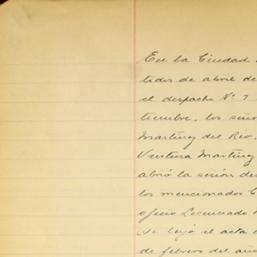 En la Ciudad
tidos de abril de
el despacho Nº 7
tiembre, los seño
Martínez del Rio,
Ventura Martínez
abrió la sesión de
los mencionados C
oficio Licenciado
Se leyó el acta
de febrero del año